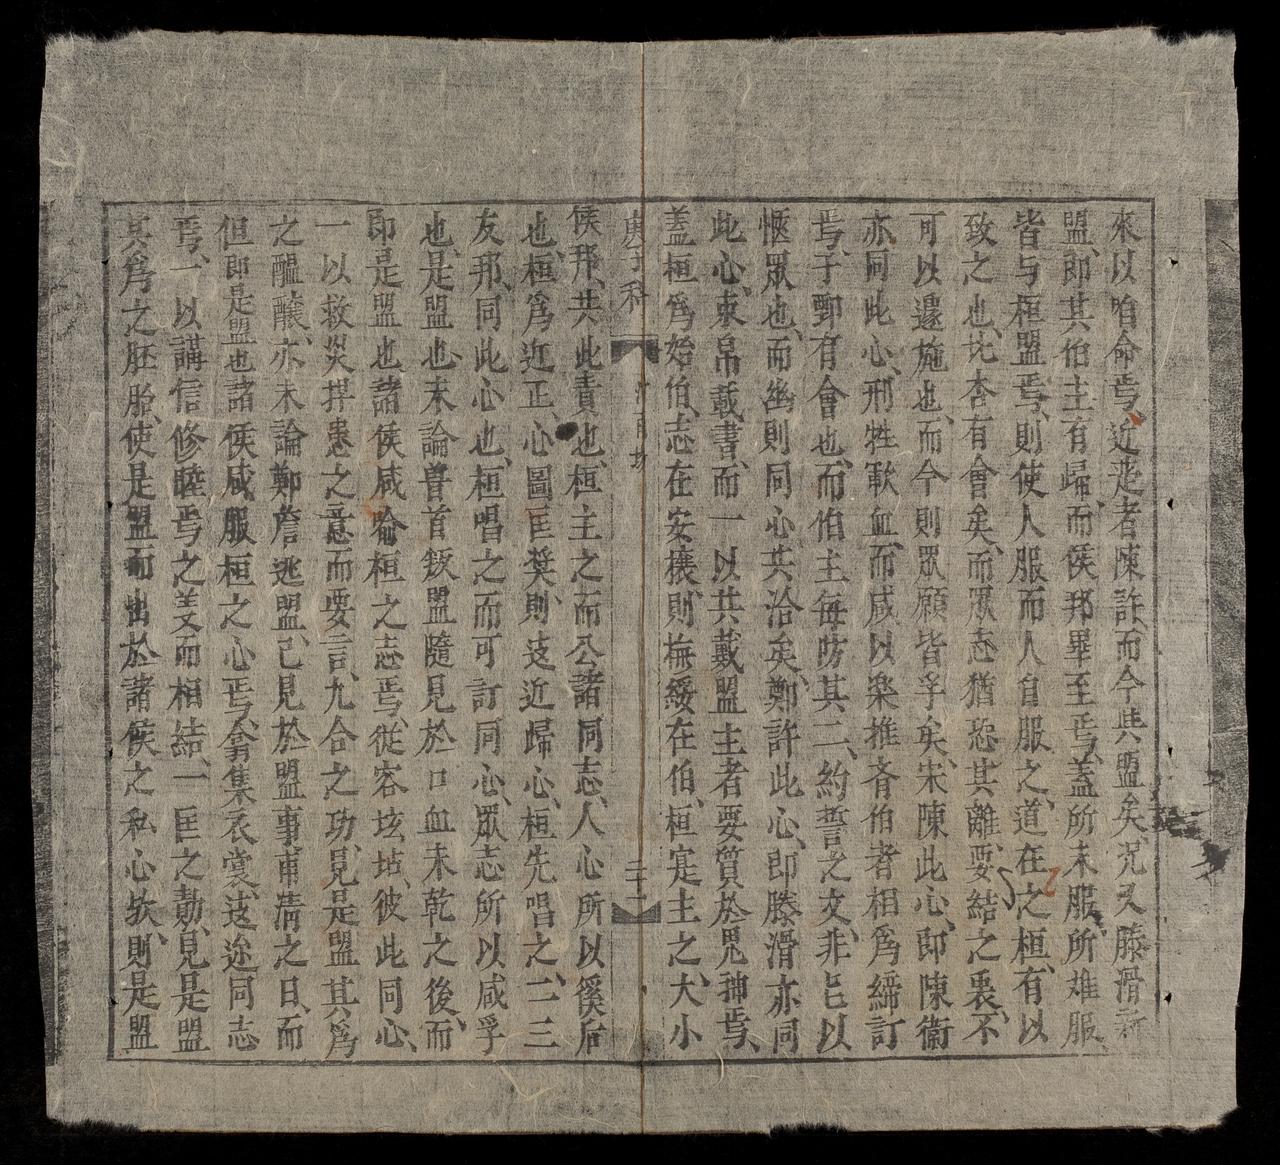 來以咱命焉、近楚者陳許而今與盟矣、况又滕滑新
盟、即其伯主有歸、而侯邦畢至焉、蓋所未服所难服、
皆与桓盟焉、則使人服而人自服之、道在之桓、有以
致之也、北杏有會矣、而眾志猶恐其離、要結之衷、不
可以遽施也、而今則眾願皆孚矣、宋陳此心、即陳衞
亦同此心、刑牲歃血、而咸以樂推齊伯者相爲締訂
焉、于鄄有會也、而伯主每防其二、約誓之文、非㠯以
愜眾也、而幽則同心共洽矣、鄭許此心、即滕滑亦同
此心、束帛載書、而一以共戴盟主者要質於鬼神焉、
蓋桓爲始伯、志在安攘、則撫綏在伯、桓寔主之、大小
庚子科
三十二
侯邦、共此責也、桓主之而公諸同志、人心所以徯后
也、桓爲近正、心圖匡奬、則遠近歸心、桓先唱之、二三
友邦、同此心也、桓唱之而可訂同心、眾志所以咸孚
也、是盟也、未論魯首叛盟隨見於口血未乾之後、而
即是盟也諸侯咸喻桓之志焉、從容坛坫、彼此同心、
一以救災捍患之意而要言、九合之功、見是盟其爲
之醞釀、亦未論鄭詹逃盟、已見於盟事甫清之日、而
但即是盟也諸侯咸服桓之心焉、翕集衣裳、遠迩同志
焉、一以講信修睦焉之美而相結、一匡之勣、見是盟
其爲之胚胎、使是盟而出於諸侯之私心欤、則是盟